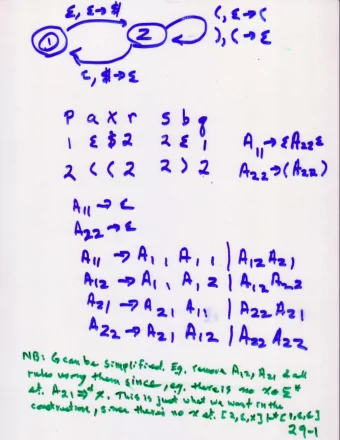 ε, ε → $
1
2
(, ε → (
), ( → ε
ε, $ → ε
p a x r s b q
1 ε $ 2 2 ε 1 A₁₁ → εA₂₂ε
2 ( ( 2 2 ) 2 A₂₂ → (A₂₂)
A₁₁ → ε
A₂₂ → ε
A₁₁ → A₁₁ A₁₁ | A₁₂ A₂₁
A₁₂ → A₁₁ A₁₂ | A₁₂ A₂₂
A₂₁ → A₂₁ A₁₁ | A₂₂ A₂₁
A₂₂ → A₂₁ A₁₂ | A₂₂ A₂₂
NB: G can be simplified. Eg, remove A₁₂, A₂₁ & all
rules using them since, eg, there is no x ∈ Σ*
st. A₂₁ ⇒* x. This is just what we want in the
construction, since there's no x st. [2, ε, x] ⊢* [1, ε, ε]
29-1